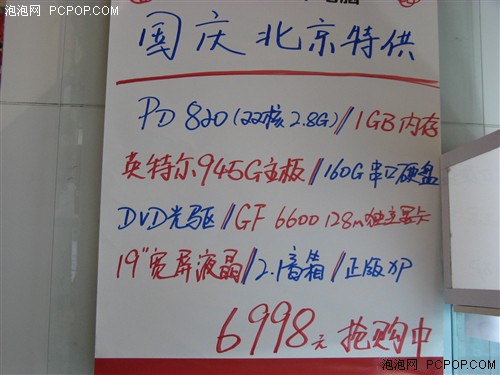 泡泡网 PCPOP.COM
国庆北京特供
PD 820(双核2.8G)//1GB内存
英特尔945G主板//160G串口硬盘
DVD光驱//GF 6600 128m独立显卡
19"宽屏液晶//2.1音箱//正版XP
6998元 抢购中
泡泡网 PCPOP.COM